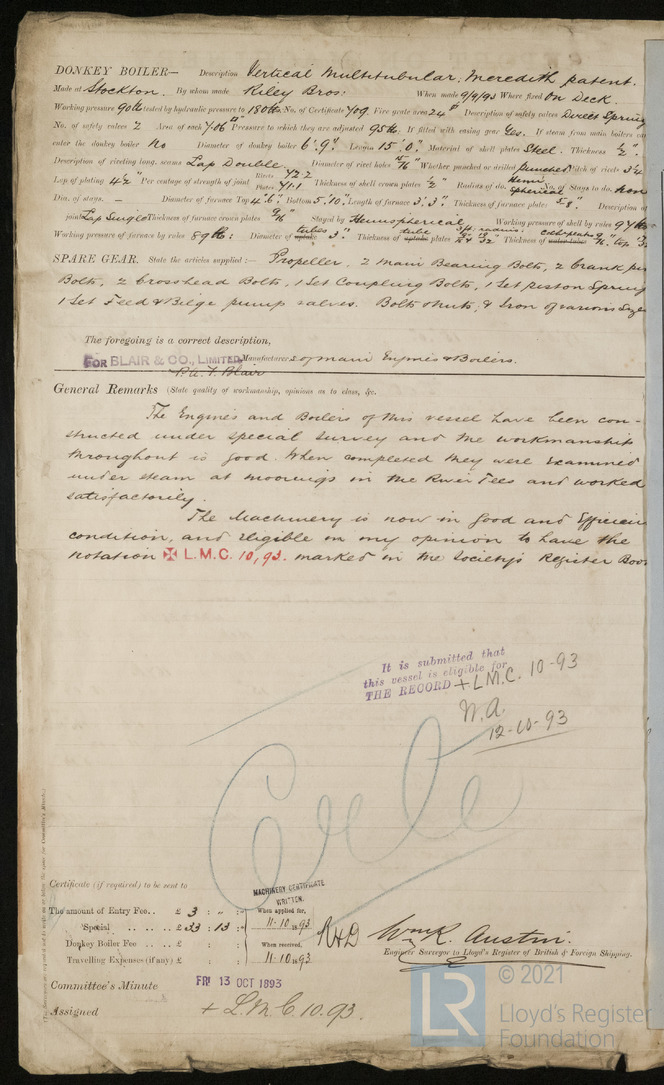 DONKEY BOILER— Description Vertical Multitubular, Meredith patent.
Made at Stockton. By whom made Riley Bros: When made 9/9/93 Where fixed On Deck.
Working pressure 90 lbs tested by hydraulic pressure to 180 lbs No. of Certificate 709 Fire grate area 24 Description of safety valves Direct Spring
No. of safety valves 2 Area of each 7.06" Pressure to which they are adjusted 95 lbs. If fitted with easing gear Yes. If steam from main boilers can
enter the donkey boiler No Diameter of donkey boiler 6'.9" Length 15'.0". Material of shell plates Steel. Thickness ½".
Description of riveting long. seams Lap Double. Diameter of rivet holes Whether punched or drilled punched Pitch of rivets 3¼
Lap of plating 4½" Per centage of strength of joint Rivets 72.2 Plates 71.1 Thickness of shell crown plates ½" Radius of do. Hemispherical No. of Stays to do. none
Dia. of stays. – Diameter of furnace Top 4'.6" Bottom 5'.10" Length of furnace 3'.3". Thickness of furnace plates 5/8". Description of
joint Lap Single Thickness of furnace crown plates 9/16" Stayed by Hemispherical Working pressure of shell by rules 97 lbs
Working pressure of furnace by rules 89 lb: Diameter of uptake tubes 3". Thickness of uptake tube plates Thickness of
SPARE GEAR. State the articles supplied:— Propeller, 2 Main Bearing Bolts, 2 Crank pin
Bolts, 2 Crosshead Bolts, 1 Set Coupling Bolts, 1 Set piston Spring
1 Set Feed & Bilge pump valves. Bolts & Nuts, & Iron of various Sizes
The foregoing is a correct description,
FOR BLAIR & CO., LIMITED. Manufacturers of main Engines & Boilers.
Blair
General Remarks (State quality of workmanship, opinions as to class, &c.
The Engines and Boilers of this vessel have been con-
structed under special survey and the workmanship
throughout is good. When completed they were examined
under steam at moorings in the River Tees and worked
satisfactorily.
The Machinery is now in good and Efficien
condition, and eligible in my opinion to have the
notation ✠ L.M.C. 10,93. marked in the Society's Register Boo
It is submitted that
this vessel is eligible for
THE RECORD + L.M.C. 10-93
12-10-93
Certificate (if required) to be sent to
MACHINERY CERTIFICATE
WRITTEN.
The amount of Entry Fee.. £ 3 : „ : When applied for,
Special .. .. .. £ 33 : 13 : 11-10-1893
Donkey Boiler Fee .. .. £ : : When received,
Travelling Expenses (if any) £ : : 11-10-1893
Wm R. Austin.
Engineer Surveyor to Lloyd's Register of British & Foreign Shipping.
Committee's Minute FRI 13 OCT 1893
Assigned + L.M.C. 10.93.
© 2021
LR Lloyd's Register
Foundation